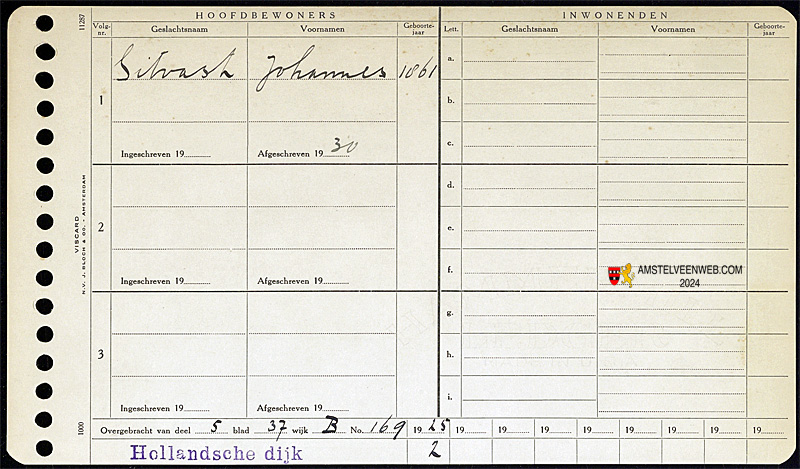 HOOFDBEWONERS INWONENDEN
11287
Volg-nr. Geslachtsnaam Voornamen Geboorte-jaar Lett. Geslachtsnaam Voornamen Geboorte-jaar
Johannes 1861
a.
1
b.
c.
Ingeschreven 19 Afgeschreven 19 30
VISCARD
N.V. J. BLOCH & CO. - AMSTERDAM
d.
2
e.
f.
AMSTELVEENWEB.COM
2024
Ingeschreven 19 Afgeschreven 19
g.
3
h.
i.
Ingeschreven 19 Afgeschreven 19
1000
Overgebracht van deel 5 blad 37 wijk B No. 169 19 25 19 19 19 19 19 19 19 19
Hollandsche dijk 2